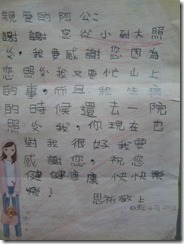 親愛的阿公:
謝謝您從小到大照
我要感謝您因為
您照 我又要忙山上
的事,而且我生病
的時候還去 院
照 我,你現在也
對我很好我要
感謝您,祝您
健健康康 快快樂
樂!
恩祈敬上